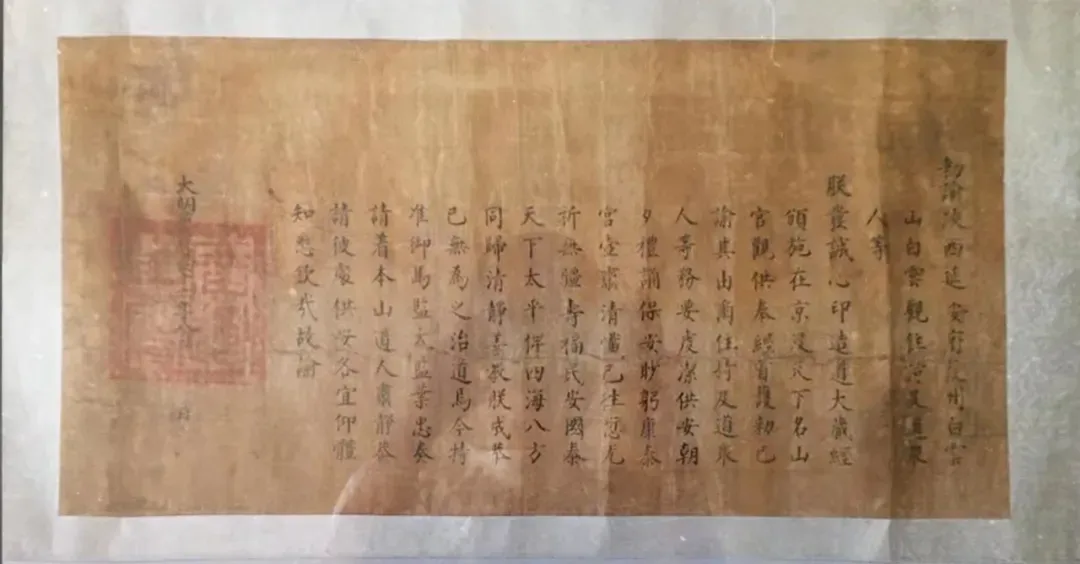 敕諭陕西延安府葭州白雲
山白雲觀住持及道衆
人等
朕發誠心印造道大藏經
頒施在京及天下名山
宮觀供奉經首護敕已
諭其山斋住持及道衆
人等務要虔潔供安朝
夕禮誦保安眇躬康泰
宮壼肅清懺已往愆尤
祈無疆壽福民安國泰
天下太平俾四海八方
同歸清靜善教朕成恭
己無為之治道焉今特
准御馬監太監葉忠奏
請着本山道人肅靜
請彼處供安各宜仰體
知悉欽哉故諭
大明